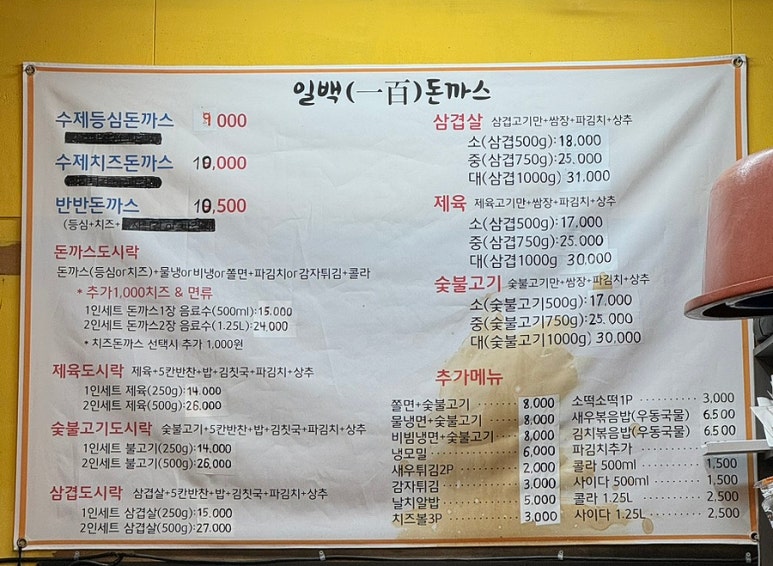 일백(一百)돈까스
수제등심돈까스 9 000
수제치즈돈까스 10,000
반반돈까스 10,500
(등심+치즈+
돈까스도시락
돈까스(등심or치즈)+물냉or비냉or쫄면+파김치or감자튀김+콜라
* 추가1,000치즈 & 면류
1인세트 돈까스1장 음료수(500ml):15.000
2인세트 돈까스2장 음료수(1.25L):24,000
* 치즈돈까스 선택시 추가 1,000원
제육도시락 제육+5칸반찬+밥+김칫국+파김치+상추
1인세트 제육(250g):14.000
2인세트 제육(500g):26.000
숯불고기도시락 숯불고기+5칸반찬+밥+김칫국+파김치+상추
1인세트 불고기(250g):14.000
2인세트 불고기(500g):26,000
삼겹도시락 삼겹살+5칸반찬+밥+김칫국+파김치+상추
1인세트 삼겹살(250g):15.000
2인세트 삼겹살(500g):27.000
삼겹살 삼겹고기만+쌈장+파김치+상추
소(삼겹500g):18.000
중(삼겹750g):25.000
대(삼겹1000g) 31.000
제육 제육고기만+쌈장+파김치+상추
소(삼겹500g):17.000
중(삼겹750g):25.000
대(삼겹1000g 30.000
숯불고기 숯불고기만+쌈장+파김치+상추
소(숯불고기500g):17.000
중(숯불고기750g):25.000
대(숯불고기1000g) 30.000
추가메뉴
쫄면+숯불고기 8.000
물냉면+숯불고기 8.000
비빔냉면+숯불고기 8,000
냉모밀 6,000
새우튀김2P 2,000
감자튀김 3.000
날치알밥 5.000
치즈볼3P 3,000
소떡소떡1P 3,000
새우볶음밥(우동국물) 6.500
김치볶음밥(우동국물) 6.500
파김치추가
콜라 500ml 1,500
사이다 500ml 1,500
콜라 1.25L 2,500
사이다 1.25L 2,500